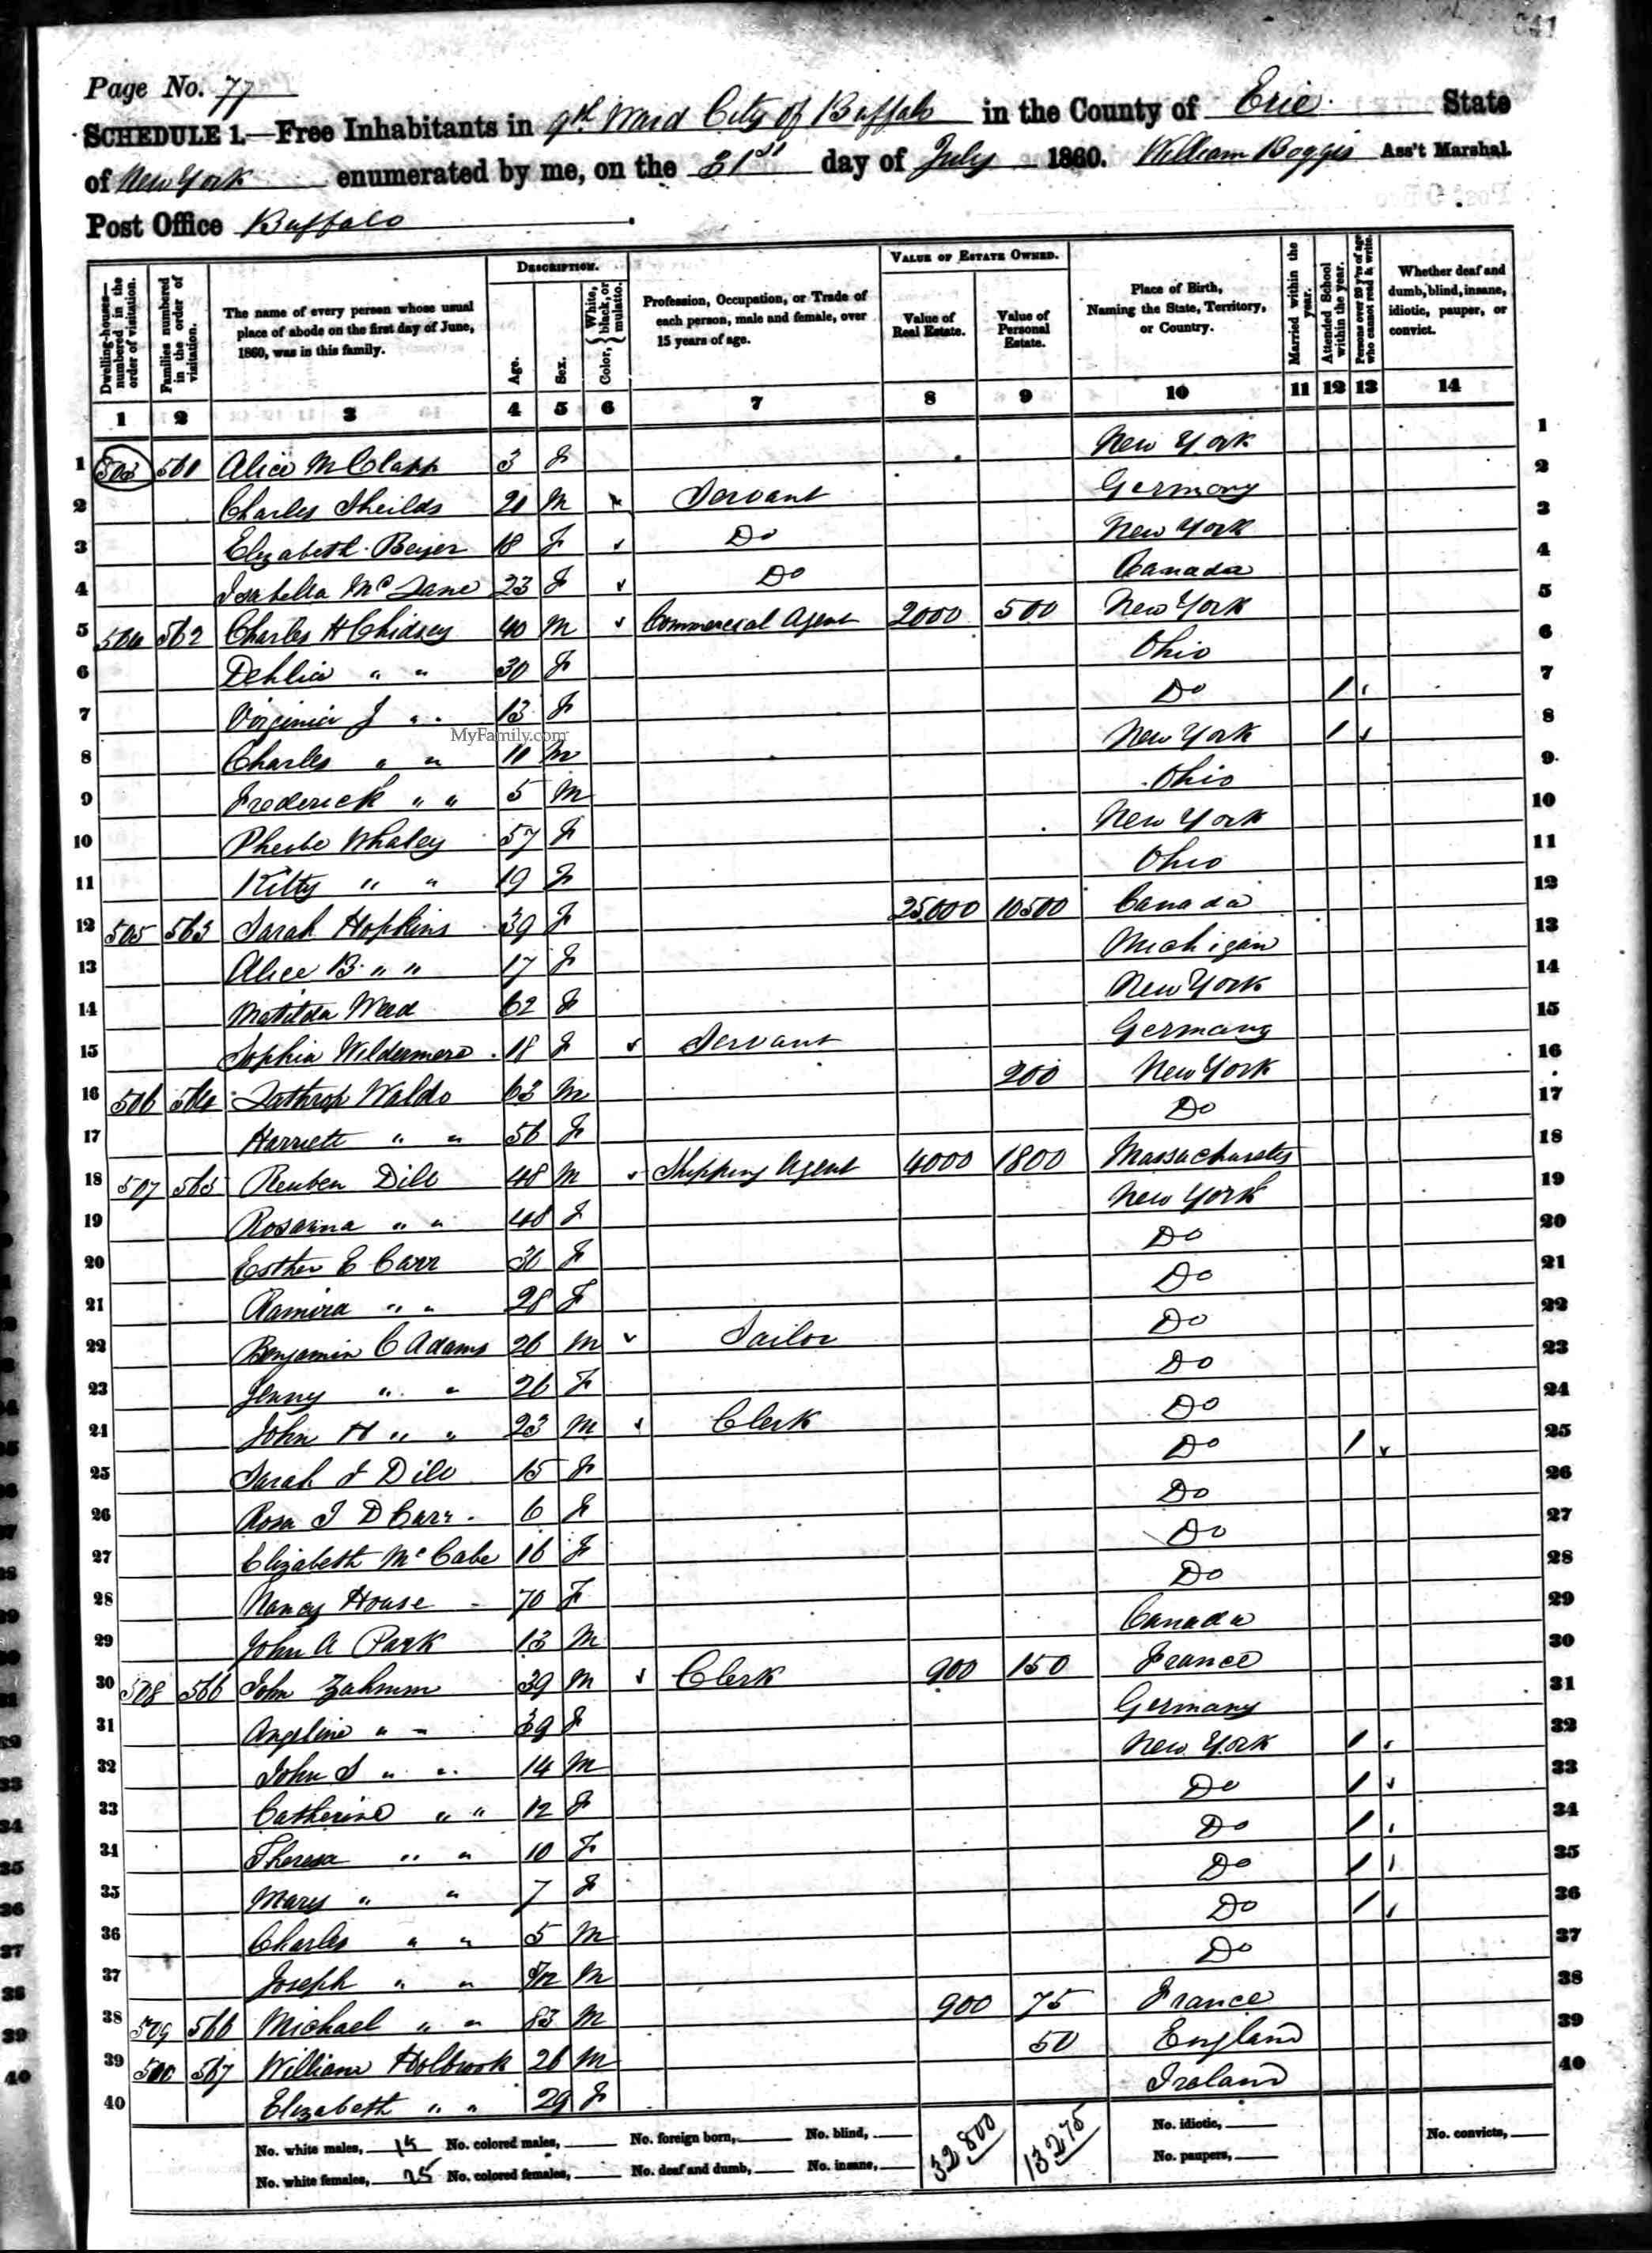 Page No. 77
SCHEDULE 1.—Free Inhabitants in 9th Ward City of Buffalo in the County of Erie State
of New York enumerated by me, on the 31st day of July 1860. William Boggis Ass't Marshal.
Post Office Buffalo
Dwelling-houses—numbered in the order of visitation.
Families numbered in the order of visitation.
The name of every person whose usual place of abode on the first day of June, 1860, was in this family.
DESCRIPTION.
Age.
Sex.
Color, { White, black, or mulatto.
Profession, Occupation, or Trade of each person, male and female, over 15 years of age.
VALUE OF ESTATE OWNED.
Value of Real Estate.
Value of Personal Estate.
Place of Birth, Naming the State, Territory, or Country.
Married within the year.
Attended School within the year.
Persons over 20 y'rs of age who cannot read & write.
Whether deaf and dumb, blind, insane, idiotic, pauper, or convict.
1 2 3 4 5 6 7 8 9 10 11 12 13 14
1 503 561 Alice M Clapp 3 F New York 1
2 Charles Sheilds 21 M Servant Germany 2
3 Elizabeth Beyer 18 F Do New York 3
4 Isabella Mc Lane 23 F Do Canada 4
5 504 562 Charles H Chidsey 40 M Commercial Agent 2000 500 New York 5
6 Dehlia " " 30 F Ohio 6
7 Virginia J " " 13 F Do / 7
MyFamily.com
8 Charles " " 11 M New York / 8
9 Frederick " " 5 M Ohio 9
10 Pheebe Whaley 57 F New York 10
11 Kitty " " 19 F Ohio 11
12 505 563 Sarah Hopkins 39 F 25000 10500 Canada 12
13 Alice B " " 17 F Michigan 13
14 Matilda Weed 62 F New York 14
15 Sophia Wildermere 18 F Servant Germany 15
16 506 564 Lathrop Waldo 63 M 200 New York 16
17 Harriett " " 56 F Do 17
18 507 565 Reuben Dill 48 M Shipping Agent 4000 1800 Massachusetts 18
19 Rosanna " " 48 F New York 19
20 Esther E Carr 30 F Do 20
21 Ramira " " 28 F Do 21
22 Benjamin C Adams 26 M Sailor Do 22
23 Jenny " " 26 F Do 23
24 John H " " 23 M Clerk Do 24
25 Sarah J Dill 15 F Do / 25
26 Rosa I D Carr 6 F Do 26
27 Elizabeth Mc Cabe 16 F Do 27
28 Nancy House 70 F Do 28
29 John A Park 13 M Canada 29
30 508 566 John Zahmm 39 M Clerk 900 150 France 30
31 Angeline " " 39 F Germany 31
32 John S " " 14 M New York / 32
33 Catherine " " 12 F Do / 33
34 Theresa " " 10 F Do / 34
35 Mary " " 7 F Do / 35
36 Charles " " 5 M Do / 36
37 Joseph " " 5/12 M Do 37
38 509 566 Michael " " 83 M 900 75 France 38
39 567 William Holbrook 26 M 50 England 39
40 Elizabeth " " 29 F Ireland 40
No. white males, 15 No. colored males, No. foreign born, No. blind, 32,800 13275 No. idiotic, No. convicts,
No. white females, 25 No. colored females, No. deaf and dumb, No. insane, No. paupers,